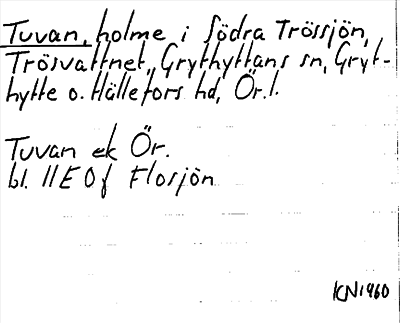 Tuvan, holme i södra Trössjön,
Trösvattnet, Grythyttans sn, Gryt-
hytte o. Hällefors hd, Ör. l.
Tuvan ek Ör.
bl. 11E0f Flosjön
KN1960